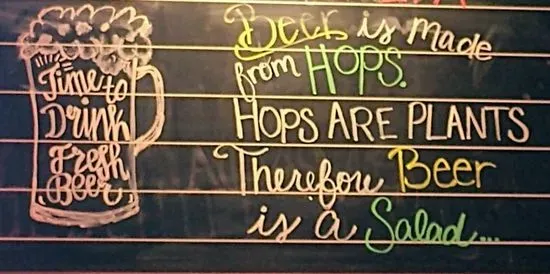 Time to
Drink
Fresh
Beer
Beer is made
from HOPS.
HOPS ARE PLANTS
Therefore Beer
is a Salad...